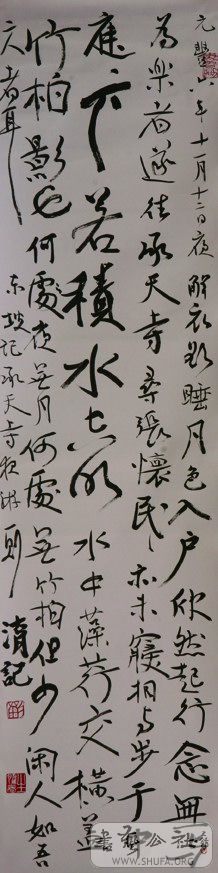 元豐六年十一月十二日夜解衣欲睡月色入户欣然起行念無
為樂者遂往承天寺尋張懷民〻亦未寢相与步于
庭下若積水空明水中藻荇交橫蓋
竹柏影也何處夜無月何處無竹柏但少闲人如吾
者耳 东坡记承天寺夜游一则 記
書法公社
WWW.SHUFA.ORG